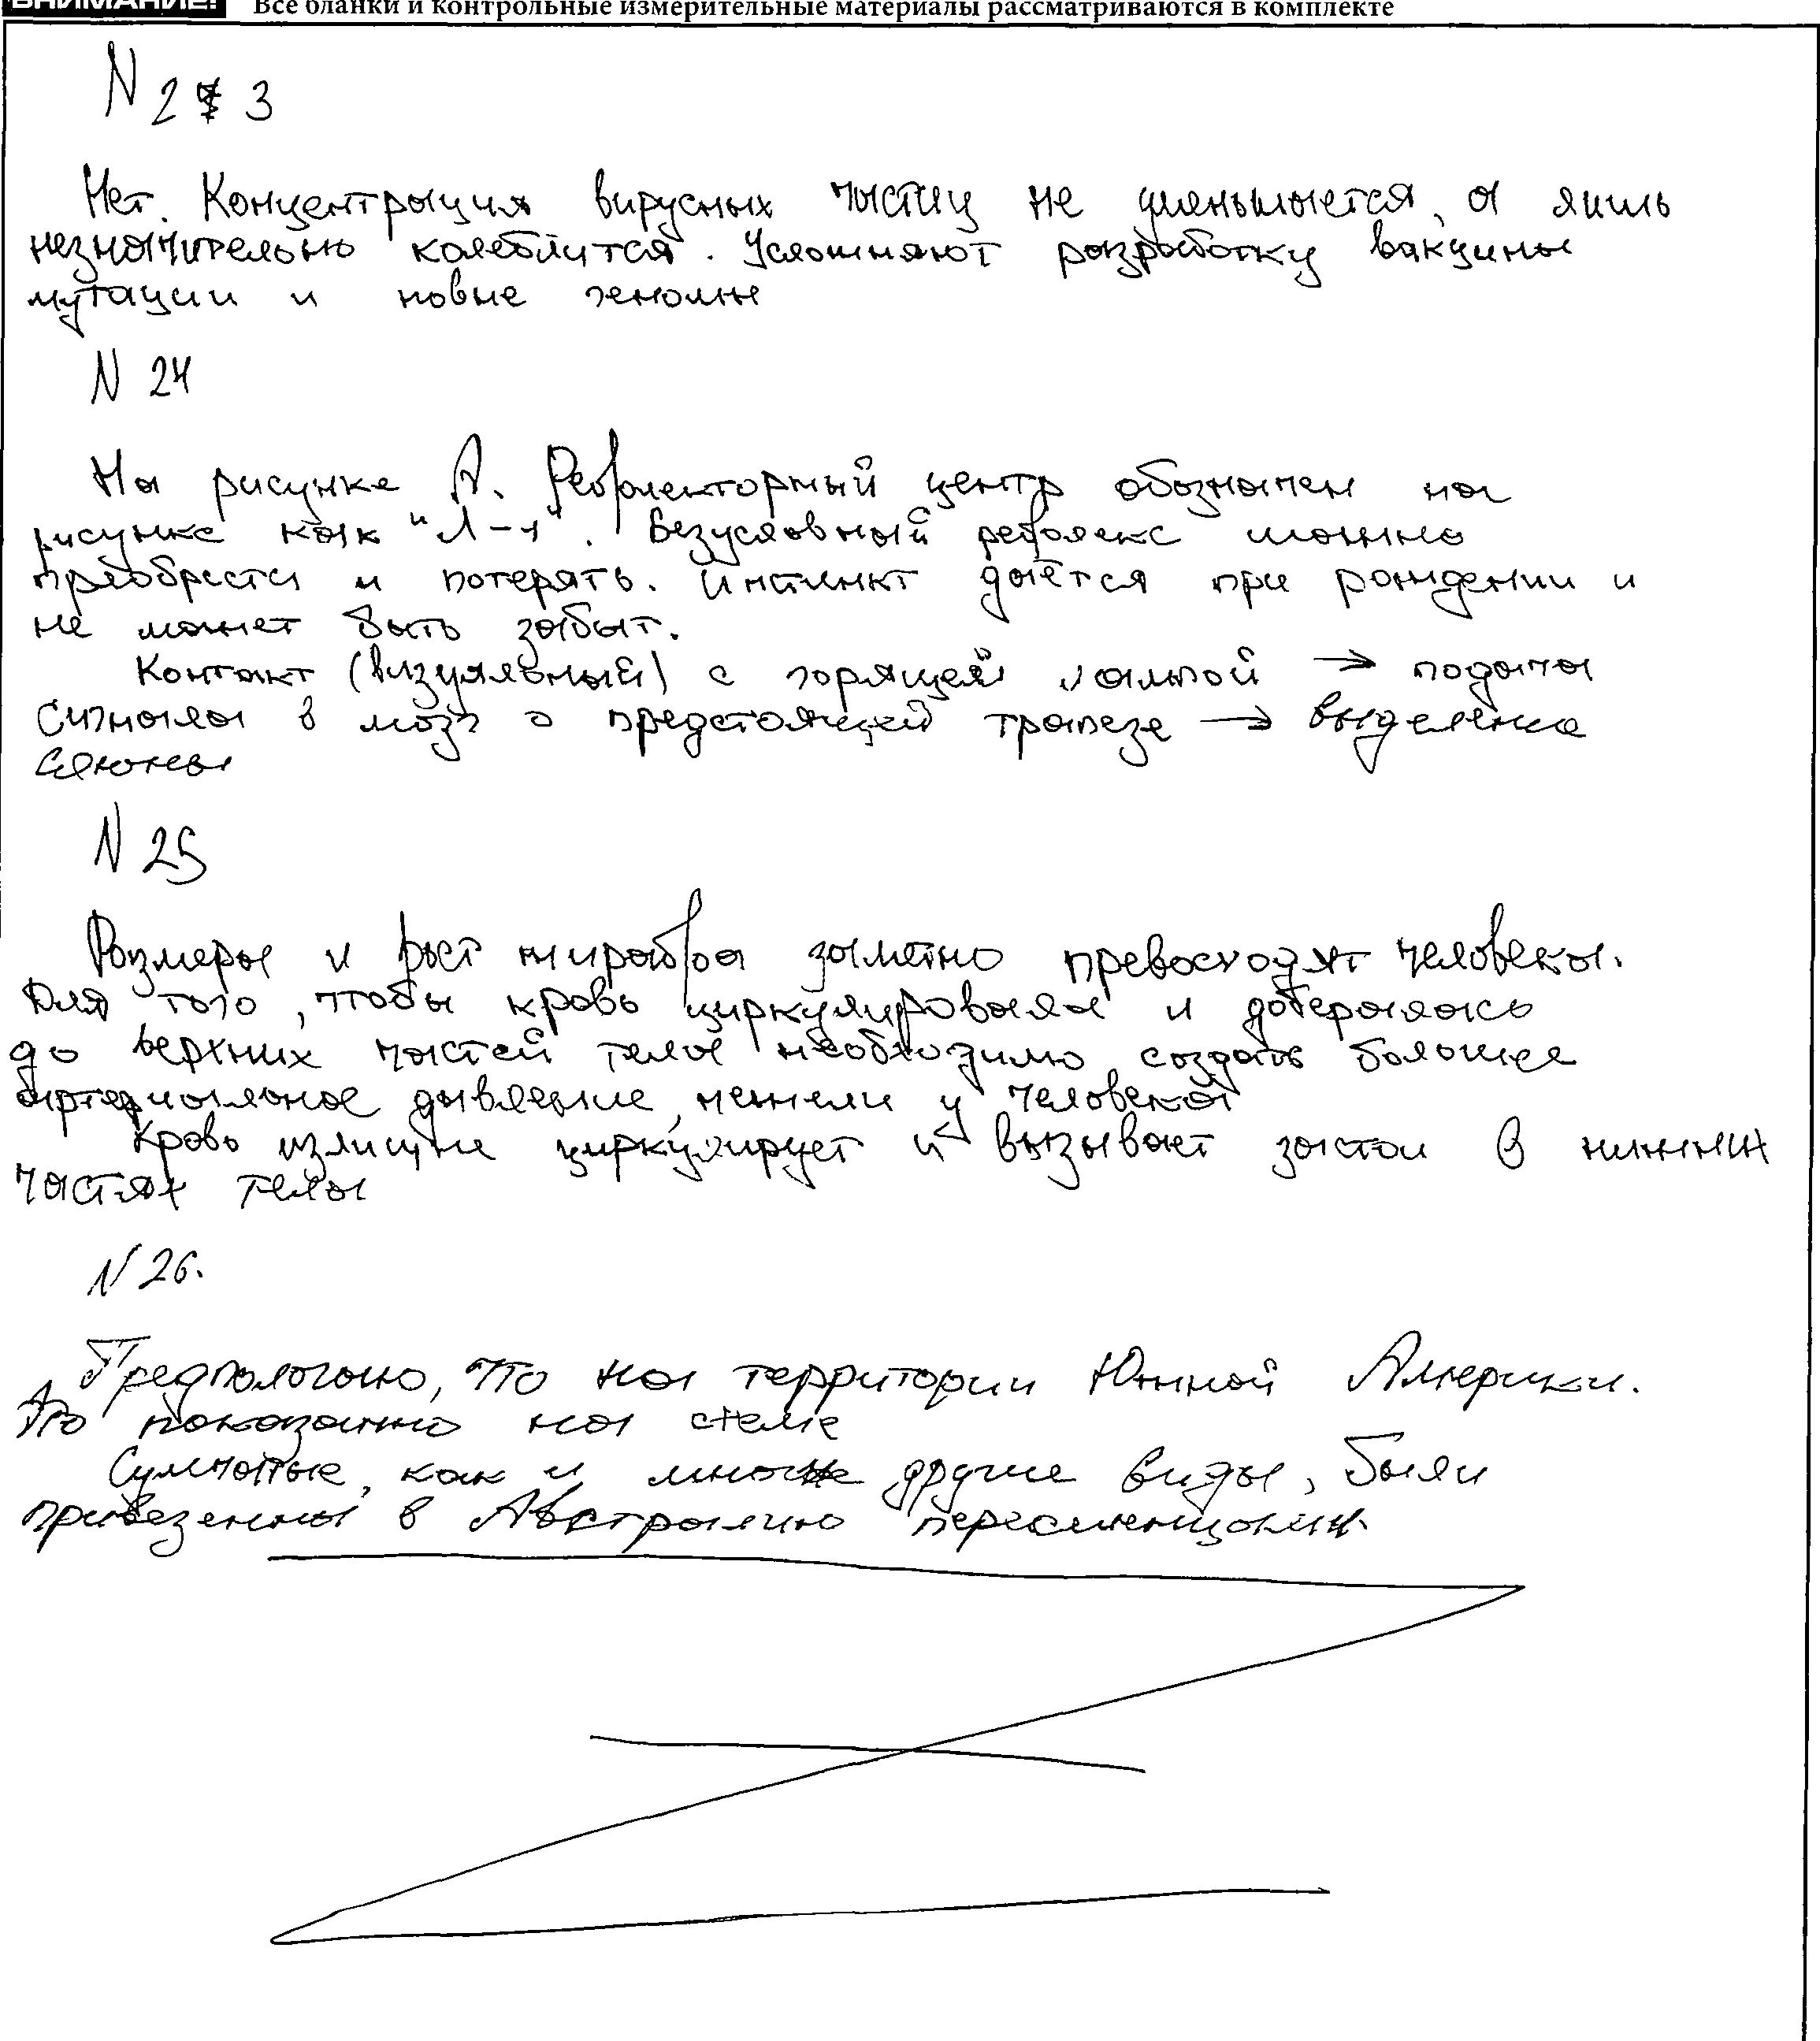 ВНИМАНИЕ! Все бланки и контрольные измерительные материалы рассматриваются в комплекте
N 23
Нет. Концентрация вирусных частиц не уменьшается, а лишь
незначительно колеблится. Усложняют разработку вакцины
мутации и новые геномы
N 24
На рисунке А. Рефлекторный центр обозначен на
рисунке как "1-ч". Безусловный рефлекс можно
преобрести и потерять. Инстинкт даётся при рождении и
не может быть забыт.
Контакт (визуальный) с горящей лампой → подача
сигнала в мозг о предстоящей трапезе → выделение
слюны
N 25
Размеры и рост жирафа заметно превосходят человека.
Для того, чтобы кровь циркулировала и добералась
до верхних частей тела необходимо создать большее
артериальное давление, нежели у человека
Кровь излишне циркулирует и вызывает застои в нижних
частях тела
N 26.
Предполагаю, что на территории Южной Америки.
Это показанно на схеме
Сумчатые, как и многие другие виды, были
привезенны в Австралию переселенцами.